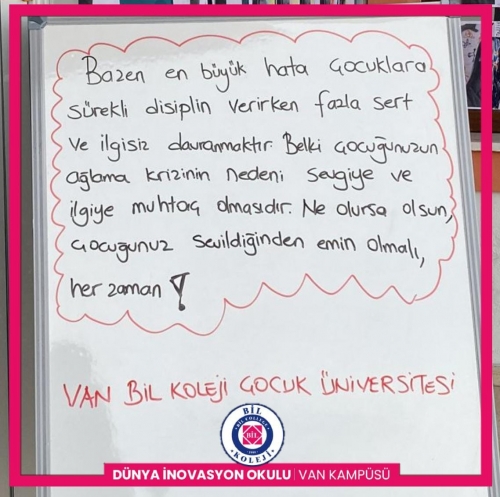 Bazen en büyük hata çocuklara
sürekli disiplin verirken fazla sert
ve ilgisiz davranmaktır. Belki çocuğunuzun
ağlama krizinin nedeni sevgiye ve
ilgiye muhtaç olmasıdır. Ne olursa olsun,
çocuğunuz sevildiğinden emin olmalı,
her zaman !
VAN BİL KOLEJİ ÇOCUK ÜNİVERSİTESİ
BİL
BİL
KOLEJİ
DÜNYA İNOVASYON OKULU | VAN KAMPÜSÜ